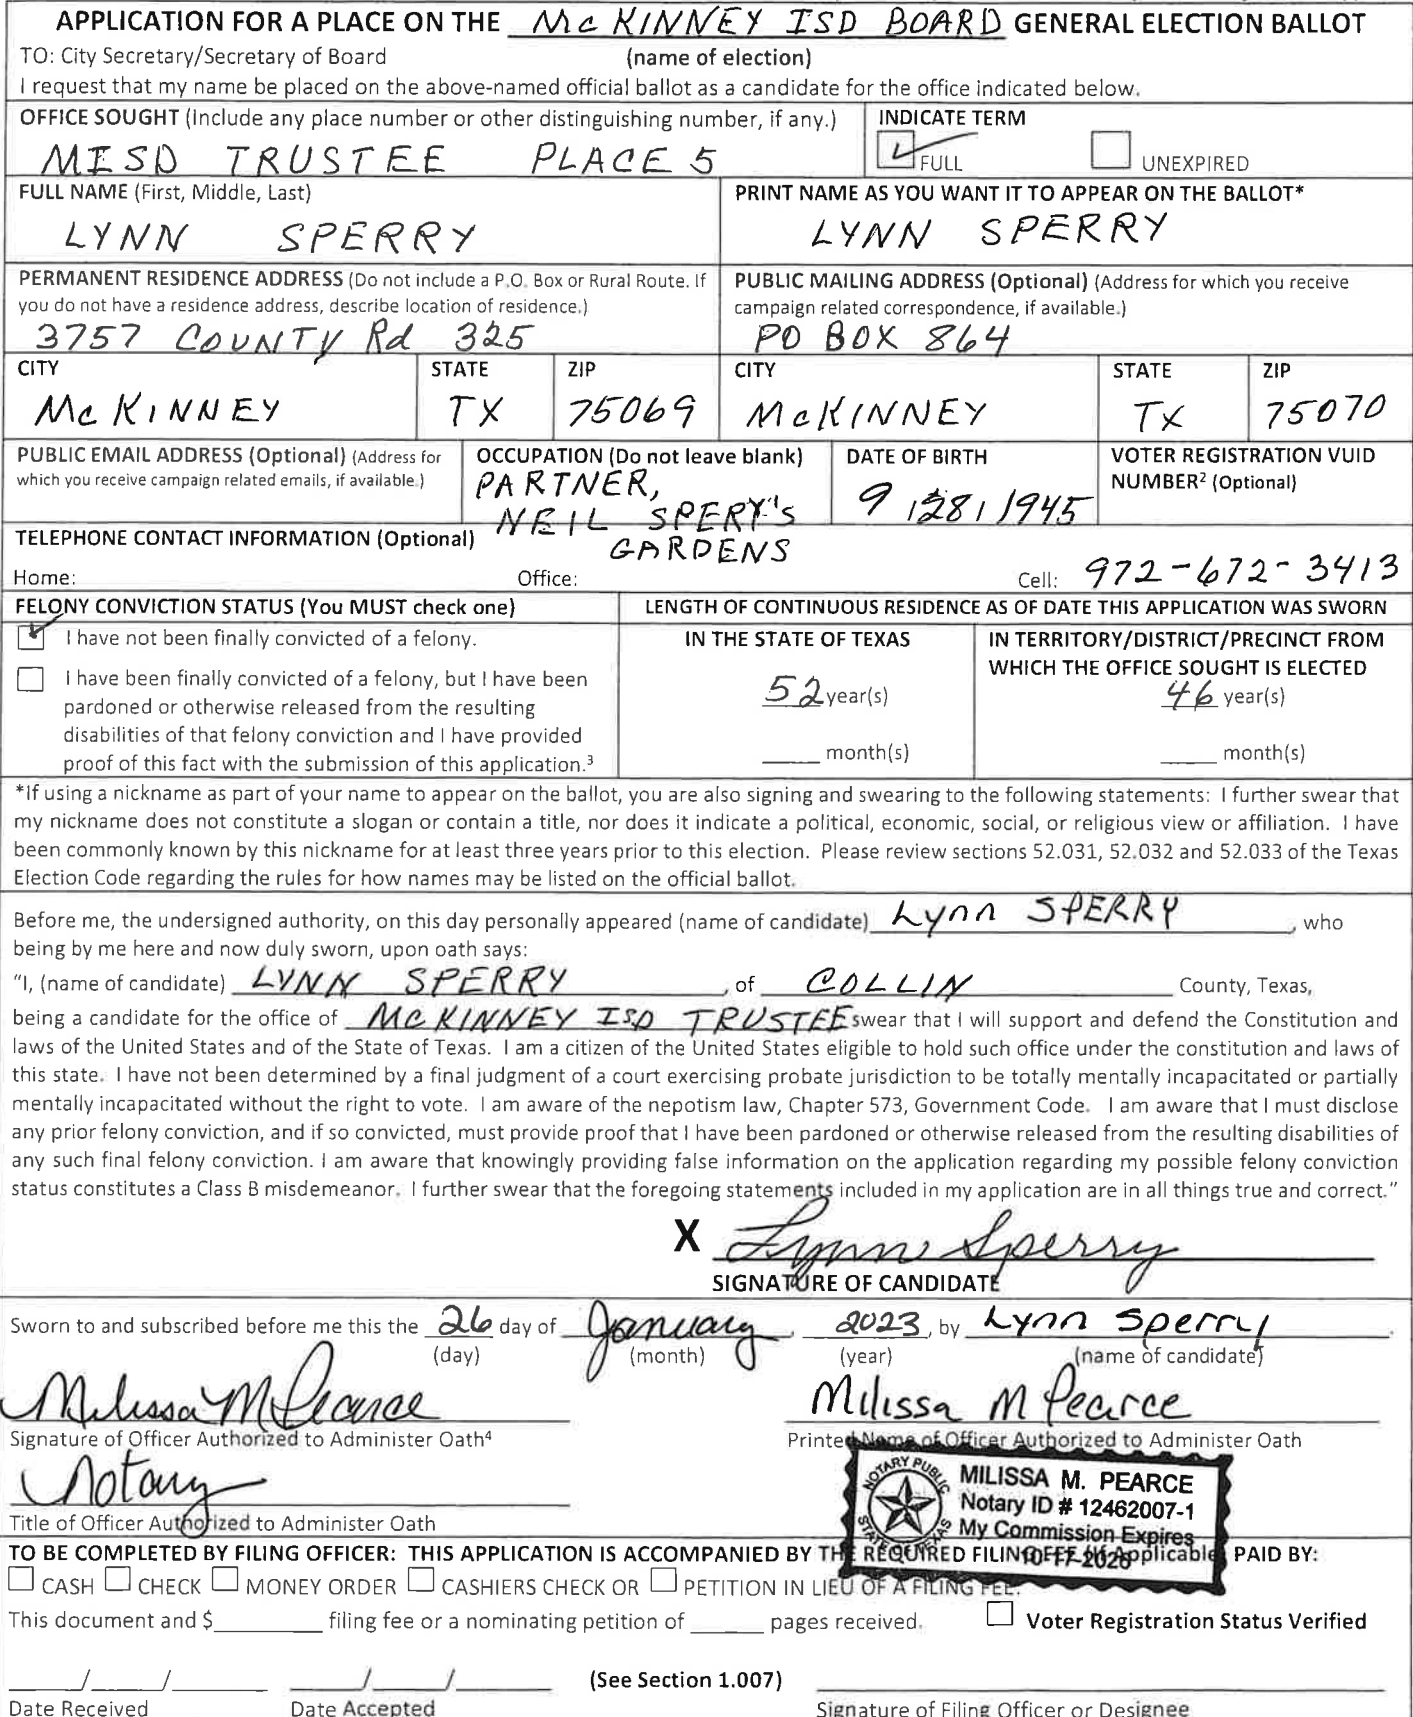 APPLICATION FOR A PLACE ON THE McKINNEY ISD BOARD GENERAL ELECTION BALLOT
TO: City Secretary/Secretary of Board (name of election)
I request that my name be placed on the above-named official ballot as a candidate for the office indicated below.
OFFICE SOUGHT (Include any place number or other distinguishing number, if any.) INDICATE TERM
MISD TRUSTEE PLACE 5 FULL UNEXPIRED
FULL NAME (First, Middle, Last) PRINT NAME AS YOU WANT IT TO APPEAR ON THE BALLOT*
LYNN SPERRY LYNN SPERRY
PERMANENT RESIDENCE ADDRESS (Do not include a P.O. Box or Rural Route. If PUBLIC MAILING ADDRESS (Optional) (Address for which you receive
you do not have a residence address, describe location of residence.) campaign related correspondence, if available.)
3757 COUNTY Rd 325 PO BOX 864
CITY STATE ZIP CITY STATE ZIP
McKINNEY TX 75069 McKINNEY TX 75070
PUBLIC EMAIL ADDRESS (Optional) (Address for OCCUPATION (Do not leave blank) DATE OF BIRTH VOTER REGISTRATION VUID
which you receive campaign related emails, if available.) PARTNER, NUMBER² (Optional)
NEIL SPERY'S 9 / 28 / 1945
TELEPHONE CONTACT INFORMATION (Optional) GARDENS
Home: Office: Cell: 972-672-3413
FELONY CONVICTION STATUS (You MUST check one) LENGTH OF CONTINUOUS RESIDENCE AS OF DATE THIS APPLICATION WAS SWORN
I have not been finally convicted of a felony. IN THE STATE OF TEXAS IN TERRITORY/DISTRICT/PRECINCT FROM
WHICH THE OFFICE SOUGHT IS ELECTED
I have been finally convicted of a felony, but I have been
pardoned or otherwise released from the resulting 52 year(s) 46 year(s)
disabilities of that felony conviction and I have provided
proof of this fact with the submission of this application.³ month(s) month(s)
*If using a nickname as part of your name to appear on the ballot, you are also signing and swearing to the following statements: I further swear that
my nickname does not constitute a slogan or contain a title, nor does it indicate a political, economic, social, or religious view or affiliation. I have
been commonly known by this nickname for at least three years prior to this election. Please review sections 52.031, 52.032 and 52.033 of the Texas
Election Code regarding the rules for how names may be listed on the official ballot.
Before me, the undersigned authority, on this day personally appeared (name of candidate) Lynn SPERRY, who
being by me here and now duly sworn, upon oath says:
"I, (name of candidate) LYNN SPERRY, of COLLIN County, Texas,
being a candidate for the office of McKINNEY ISD TRUSTEE swear that I will support and defend the Constitution and
laws of the United States and of the State of Texas. I am a citizen of the United States eligible to hold such office under the constitution and laws of
this state. I have not been determined by a final judgment of a court exercising probate jurisdiction to be totally mentally incapacitated or partially
mentally incapacitated without the right to vote. I am aware of the nepotism law, Chapter 573, Government Code. I am aware that I must disclose
any prior felony conviction, and if so convicted, must provide proof that I have been pardoned or otherwise released from the resulting disabilities of
any such final felony conviction. I am aware that knowingly providing false information on the application regarding my possible felony conviction
status constitutes a Class B misdemeanor. I further swear that the foregoing statements included in my application are in all things true and correct."
X Lynn Sperry
SIGNATURE OF CANDIDATE
Sworn to and subscribed before me this the 26 day of January, 2023, by Lynn Sperry.
(day) (month) (year) (name of candidate)
Milissa M Pearce Milissa M Pearce
Signature of Officer Authorized to Administer Oath⁴ Printed Name of Officer Authorized to Administer Oath
Notary
Title of Officer Authorized to Administer Oath
NOTARY PUBLIC
MILISSA M. PEARCE
Notary ID # 12462007-1
My Commission Expires
10-17-2026
TO BE COMPLETED BY FILING OFFICER: THIS APPLICATION IS ACCOMPANIED BY THE REQUIRED FILING FEE (If Applicable) PAID BY:
CASH CHECK MONEY ORDER CASHIERS CHECK OR PETITION IN LIEU OF A FILING FEE.
This document and $ filing fee or a nominating petition of pages received. Voter Registration Status Verified
/ / / / (See Section 1.007)
Date Received Date Accepted Signature of Filing Officer or Designee